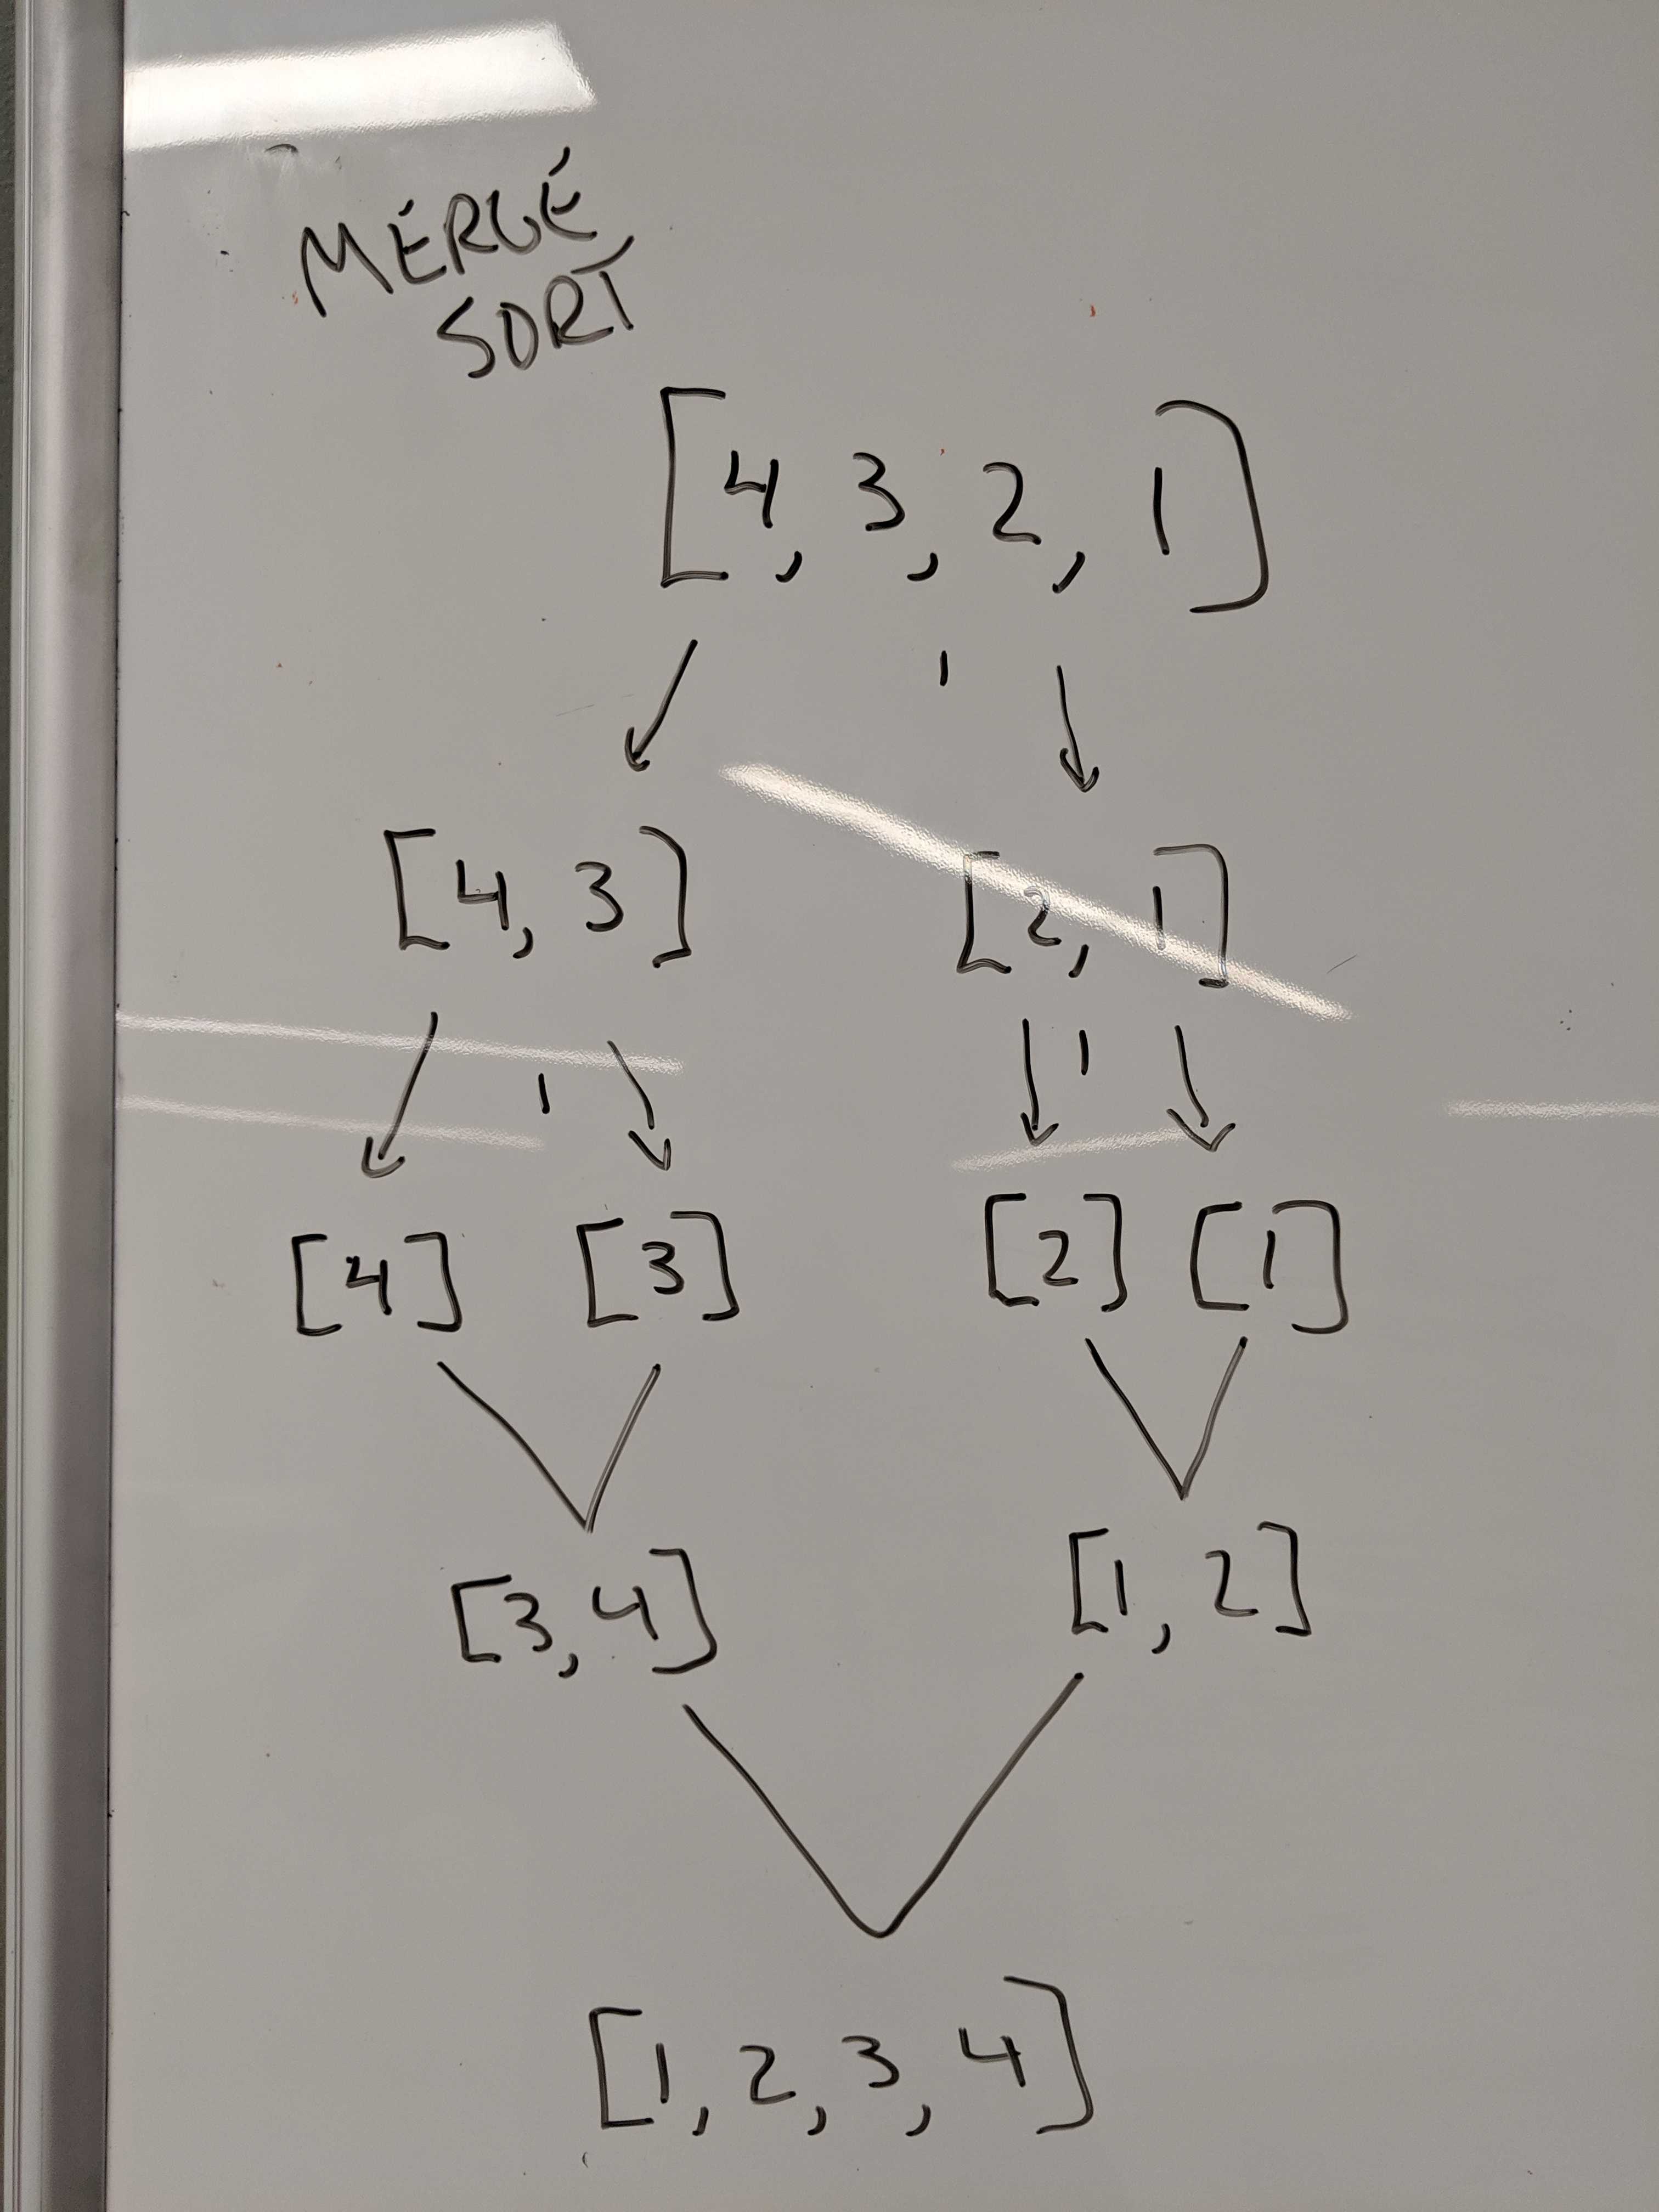 MERGE
SORT
[4, 3, 2, 1]
[4, 3] [2, 1]
[4] [3] [2] [1]
[3, 4] [1, 2]
[1, 2, 3, 4]